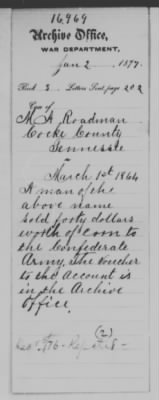 16,969
Archive Office,
WAR DEPARTMENT,
Jan 2, 1877.
Book 3 Letters Sent, page 202
Case of
M. A. Roadman
Cocke County
Tennessee
March 1st 1864
A man of the
above name
sold forty dollars
worth of corn to
the Confederate
Army, The voucher
to the account is
in the Archive
Office.
(2)